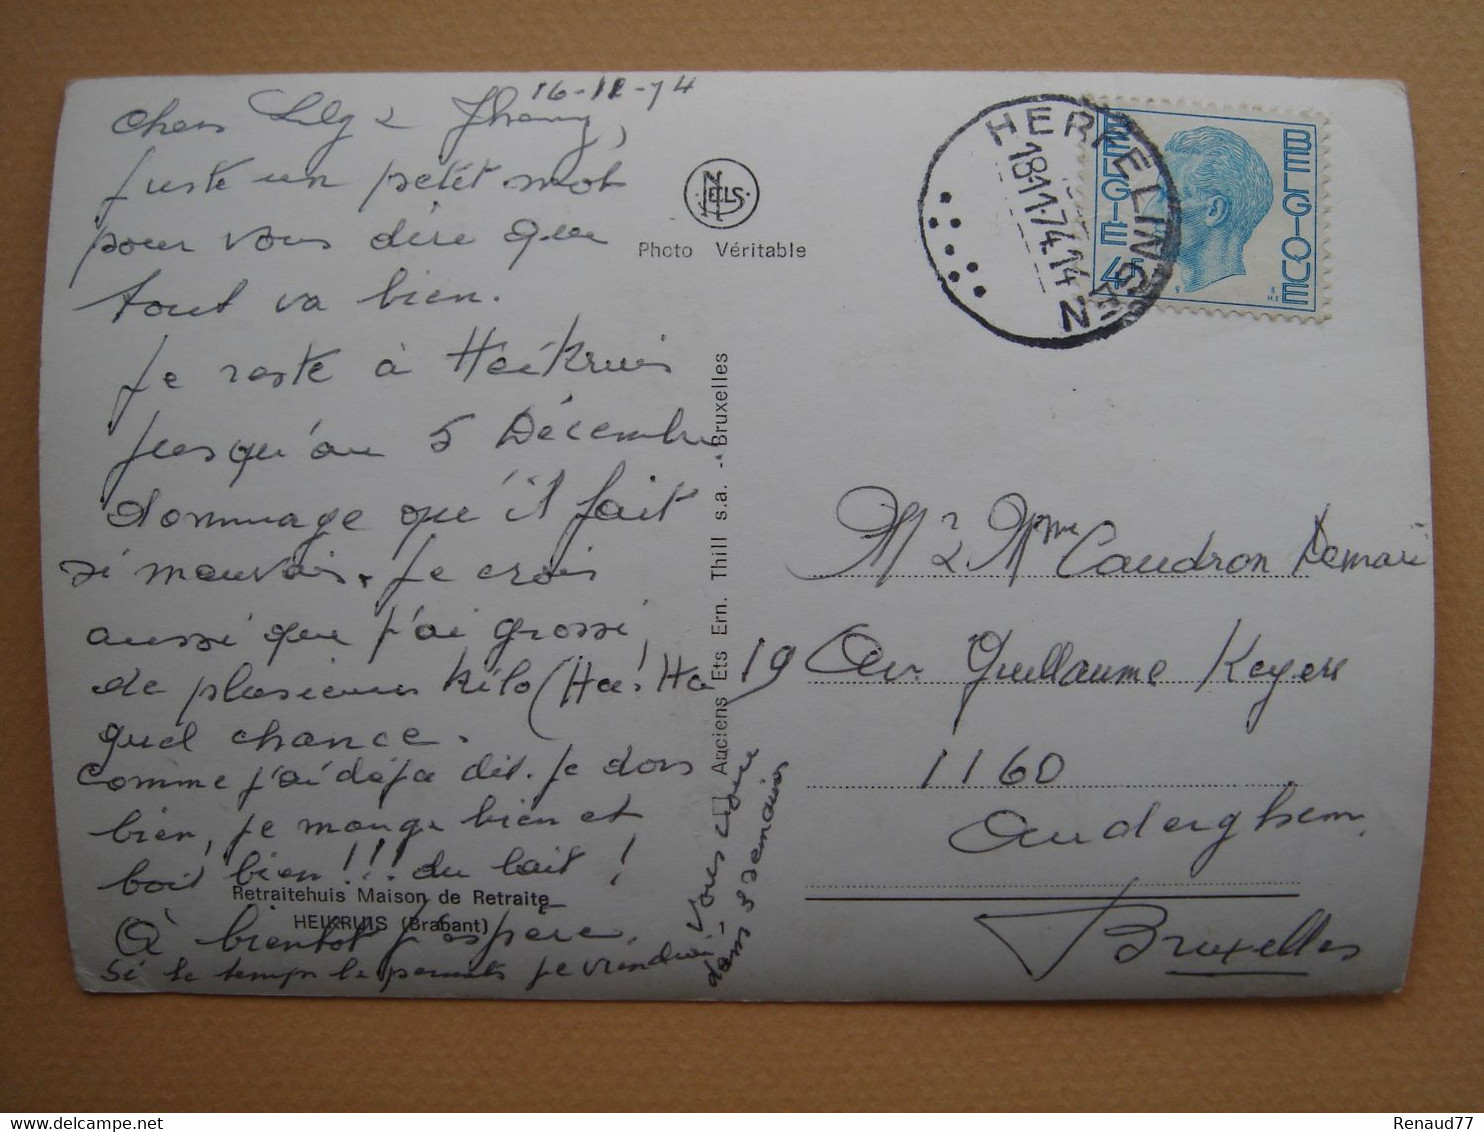 16-11-74
Chers Lily &
Juste un petit mot
pour vous dire que
tout va bien.
Je reste à Heikruis
jusqu'au 5 Décembre
dommage que'il fait
si mauvais. Je crois
aussi que j'ai grossi
de plusieurs kilo (Ha! Ha!
quel chance.
Comme j'ai déja dit. je dors
bien, je mange bien et
bois bien!!! du lait!
À bientot j'espère.
Si le temps le permets je viendrai
Vous
dans 3 semaines
Retraitehuis Maison de Retraite
HEIKRUIS (Brabant)
NELS
Photo Véritable
Anciens Ets Ern. Thill s.a. - Bruxelles
HERFELINGEN
18.11.74.14
BELGIE 4F
BELGIQUE
Mr & Mme Caudron
19 Av Guillaume Keyers
1160
Auderghem
Bruxelles
Renaud77